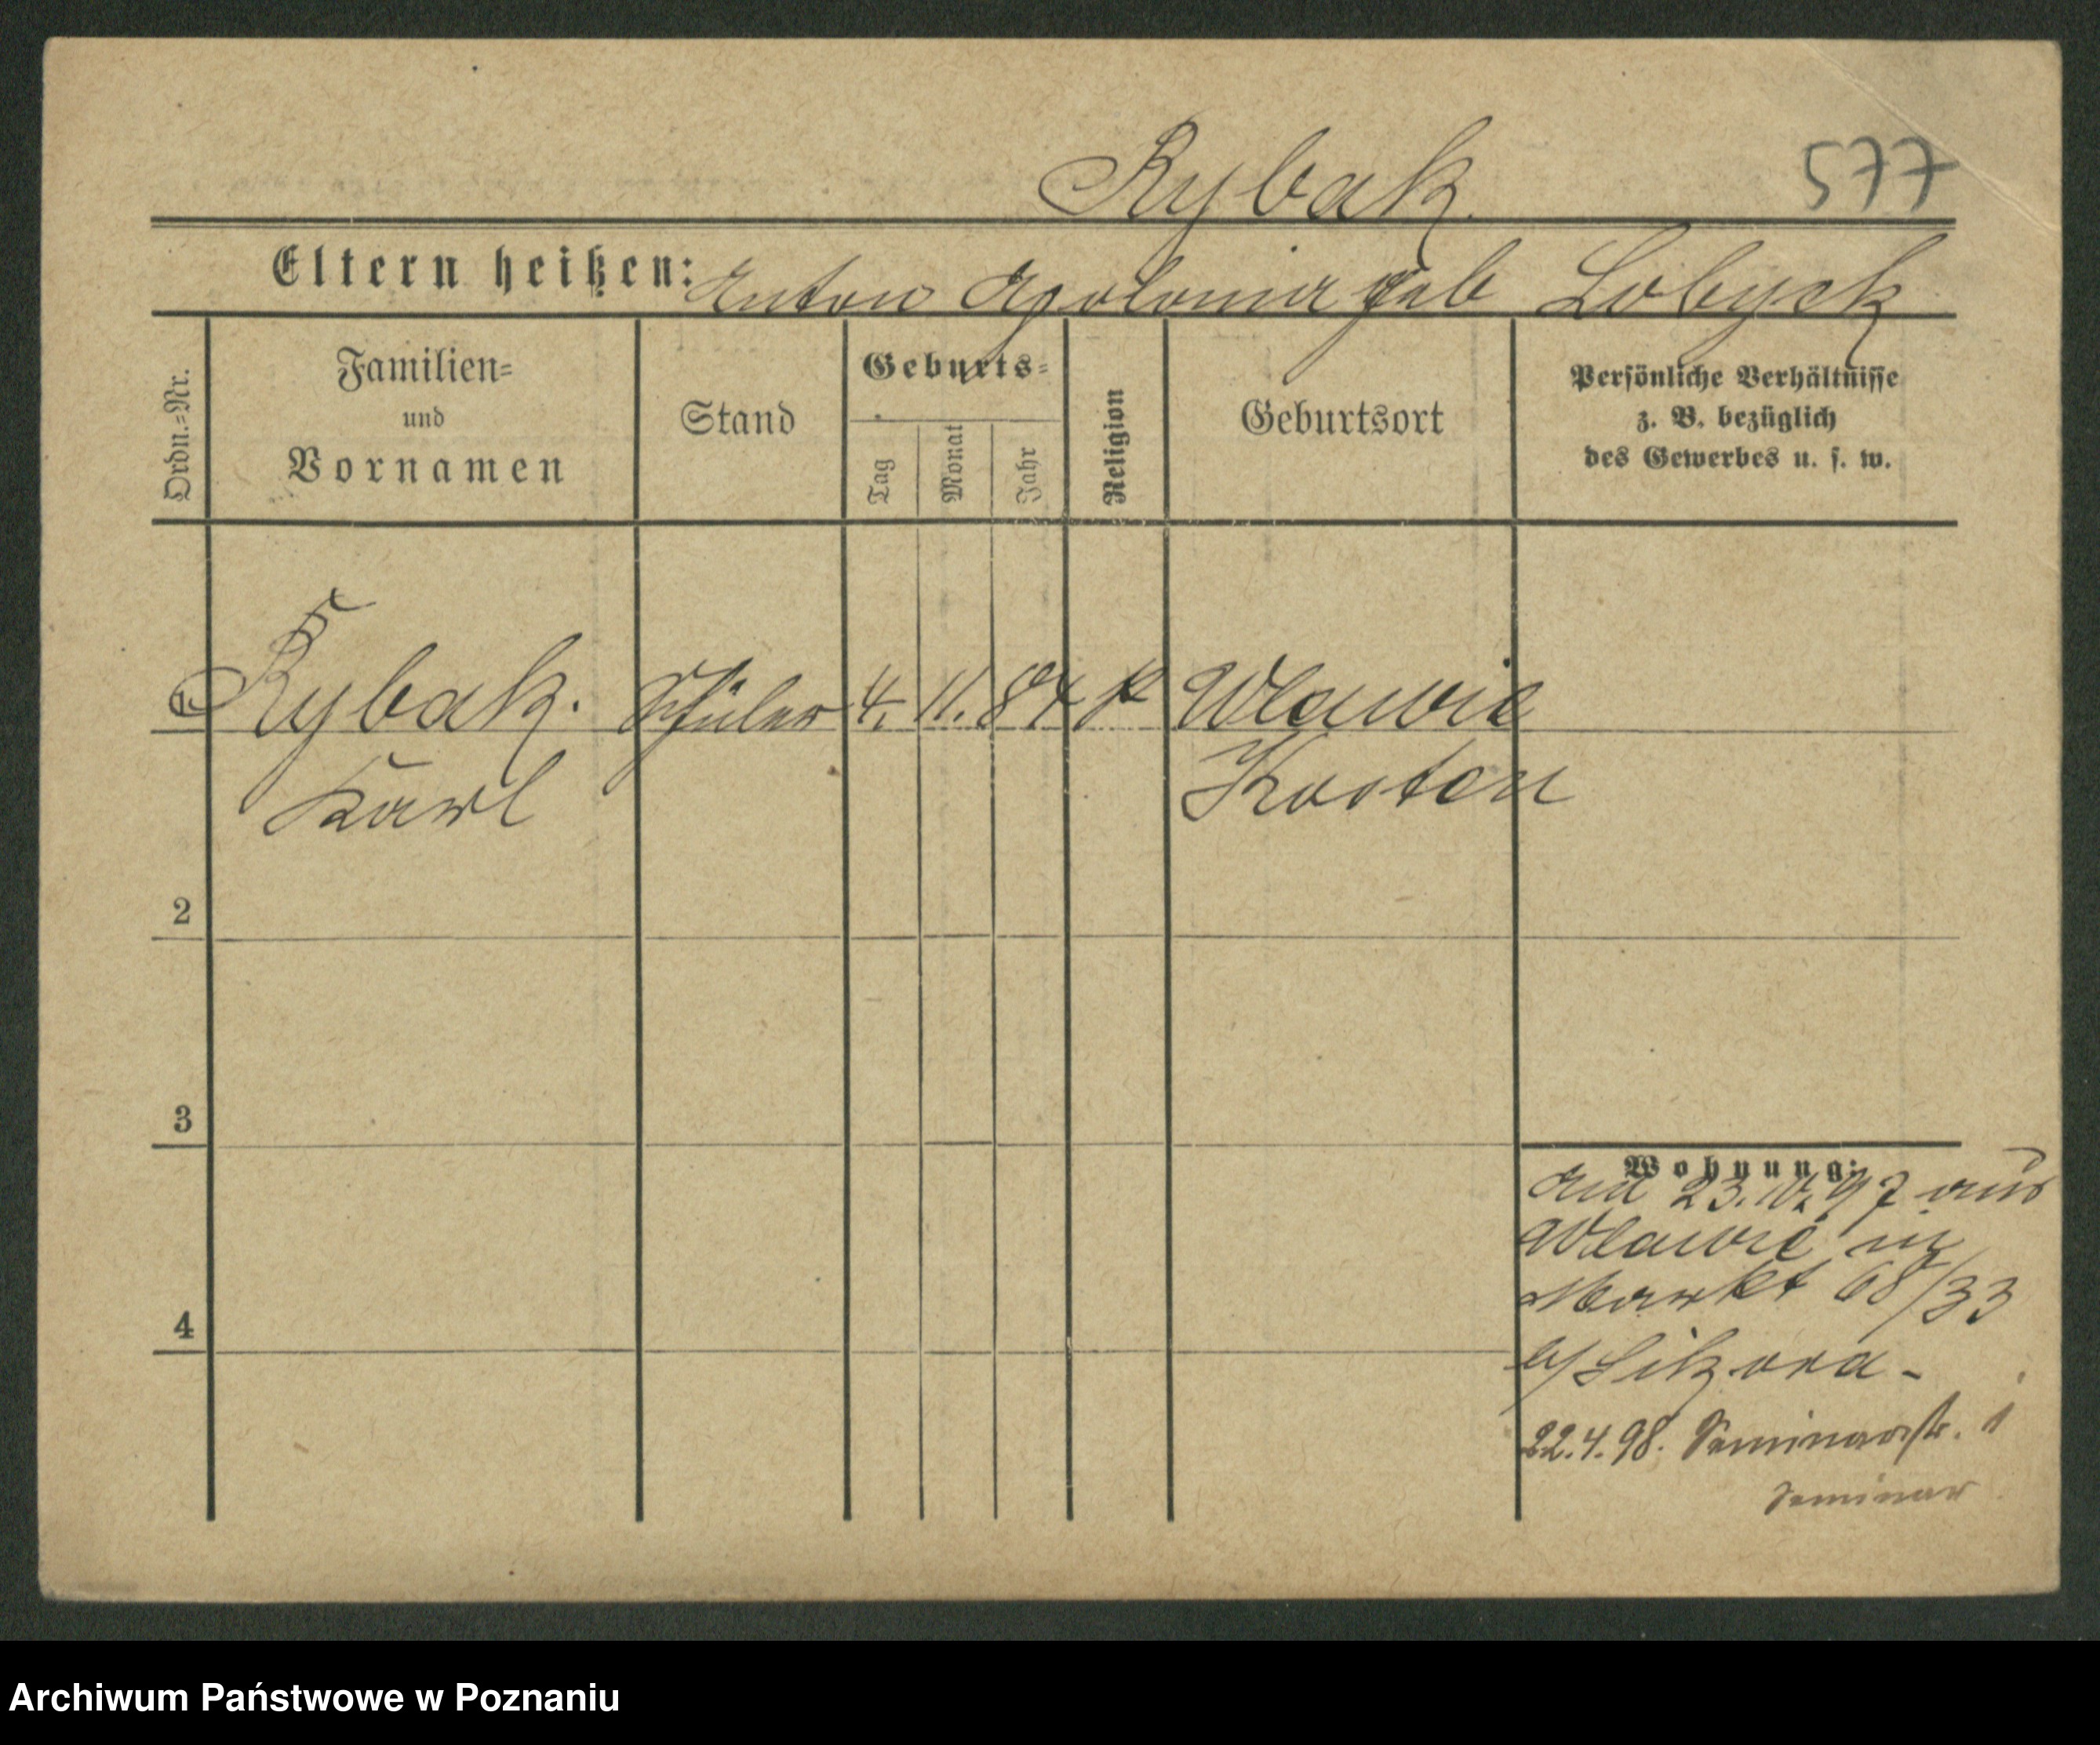 Rybak.
577
Eltern heißen: Anton Apolonia geb Lobysk
Ordn.=Nr.
Familien=
und
Vornamen
Stand
Geburts=
Tag
Monat
Jahr
Religion
Geburtsort
Persönliche Verhältnisse
z. B. bezüglich
des Gewerbes u. s. w.
1 Rybak. Schüler 4. 11. 84 k Wlawie
Karl Kosten
2
3
4
Wohnung:
am 23.10.97 aus
Wlawie in
Markt 68/33
b/ Sikora -
22.4.98. Seminarstr. 1
Seminar
Archiwum Państwowe w Poznaniu